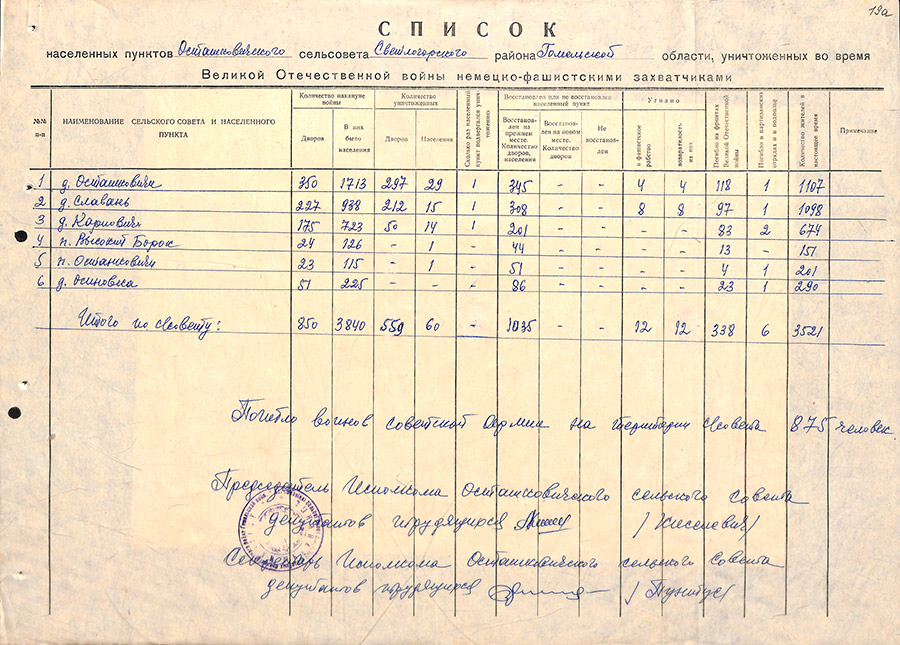 19а
СПИСОК
населенных пунктов Осташковичского сельсовета Светлогорского района Гомельской области, уничтоженных во время
Великой Отечественной войны немецко-фашистскими захватчиками
№№ п-п | НАИМЕНОВАНИЕ СЕЛЬСКОГО СОВЕТА И НАСЕЛЕННОГО ПУНКТА | Количество накануне войны: Дворов | В них было населения | Количество уничтоженных: Дворов | Населения | Сколько раз населенный пункт подвергался уничтожению | Восстановлен или не восстановлен населенный пункт: Восстановлен на прежнем месте. Количество дворов, населения | Восстановлен на новом месте. Количество дворов | Не восстановлен | Угнано: в фашистское рабство | возвратилось из них | Погибло на фронтах Великой Отечественной войны | Погибло в партизанских отрядах и в подполье | Количество жителей в настоящее время | Примечание
1 д. Осташковичи 350 1713 297 29 1 345 - - 4 4 118 1 1107
2 д. Славань 227 938 212 15 1 308 - - 8 8 97 1 1098
3 д. Карпович 175 723 50 14 1 201 - - - - 83 2 674
4 п. Высокий Борок 24 126 - 1 - 44 - - - - 13 - 151
5 п. Осташковичи 23 115 - 1 - 51 - - - - 4 1 201
6 д. Осиновка 51 225 - - - 86 - - - - 23 1 290
Итого по с/совету: 850 3840 559 60 - 1035 - - 12 12 338 6 3521
Погибло воинов советской Армии на территории с/совета 875 человек.
Председатель Исполкома Осташковичского сельского совета
депутатов трудящихся /Киселевич/
Секретарь Исполкома Осташковичского сельского Совета
депутатов трудящихся